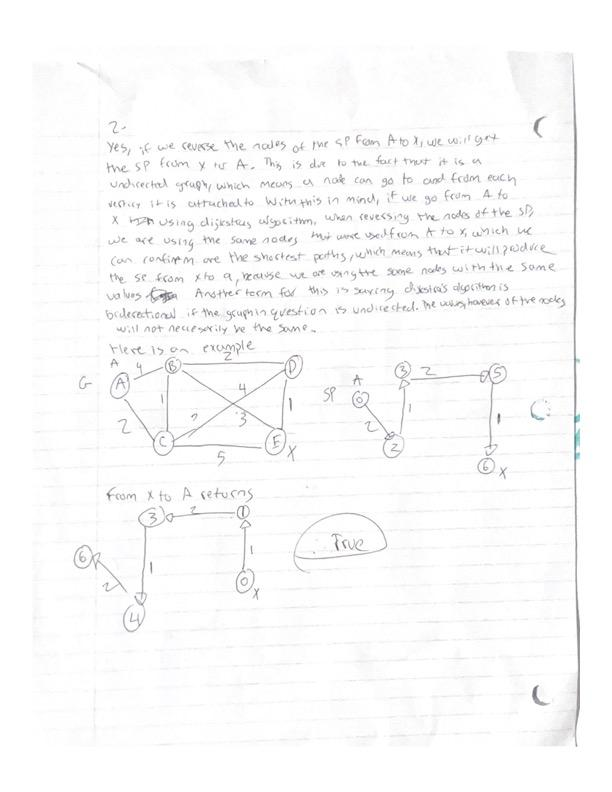 2-
Yes, if we reverse the nodes of the SP from A to X, we will get
the SP from X to A. This is due to the fact that it is a
undirected graph, which means a node can go to and from each
verticy it is attached to with this in mind, if we go from A to
X using dijkstars algorithm, when reversing the nodes of the SP,
we are using the same nodes that were used from A to X, which we
can confirm are the shortest paths, which means that it will produce
the SP from X to a, because we are using the same nodes with the same
values Another term for this is saying dijkstra's algorithm is
biderectional if the graph in question is undirected. The values, however of the nodes
will not necesserily be the same.
Here is an example
A 4 B 2 D
G A 1 4 3 1
2 C 5 E X
SP A 0 2 2 1 3 2 5 1 6 X
From X to A returns
3 2 1
6 2 1 1
4 0 X
True